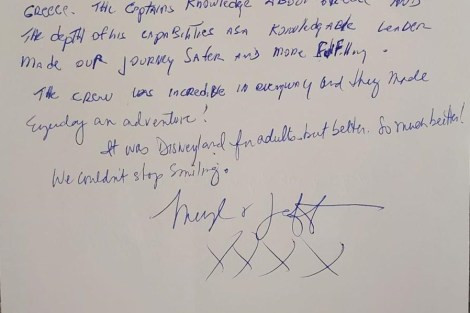 Greece. The Captains Knowledge About AND
The depth of his capabilities as a Knowledgable Leader
made our journey Safer and more
The crew was incredible in every way and they Made
Everyday an adventure!
It was Disneyland for adults but better. So much better!
We couldn't stop Smiling.
& Jeff
XXXX